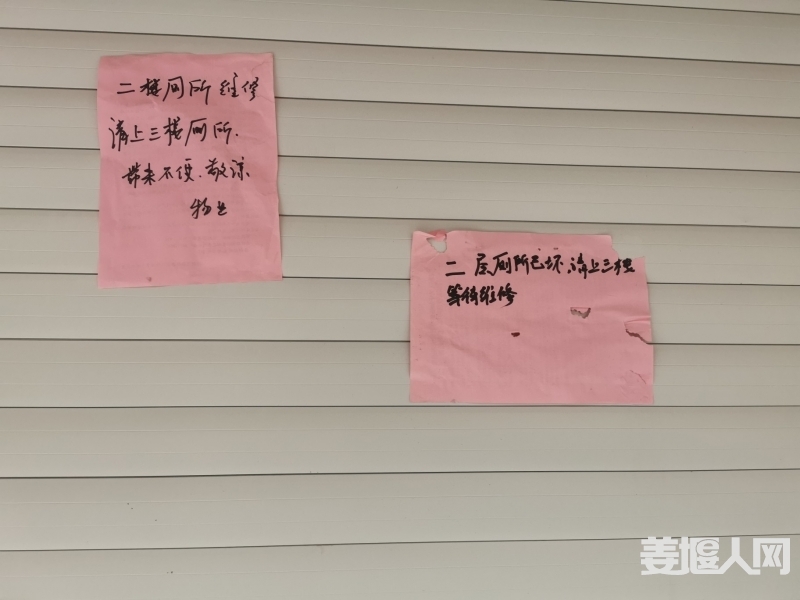 二楼厕所维修
请上三楼厕所.
带来不便.敬谅
物业
二层厕所已坏.请上三楼
等待维修
姜堰人网